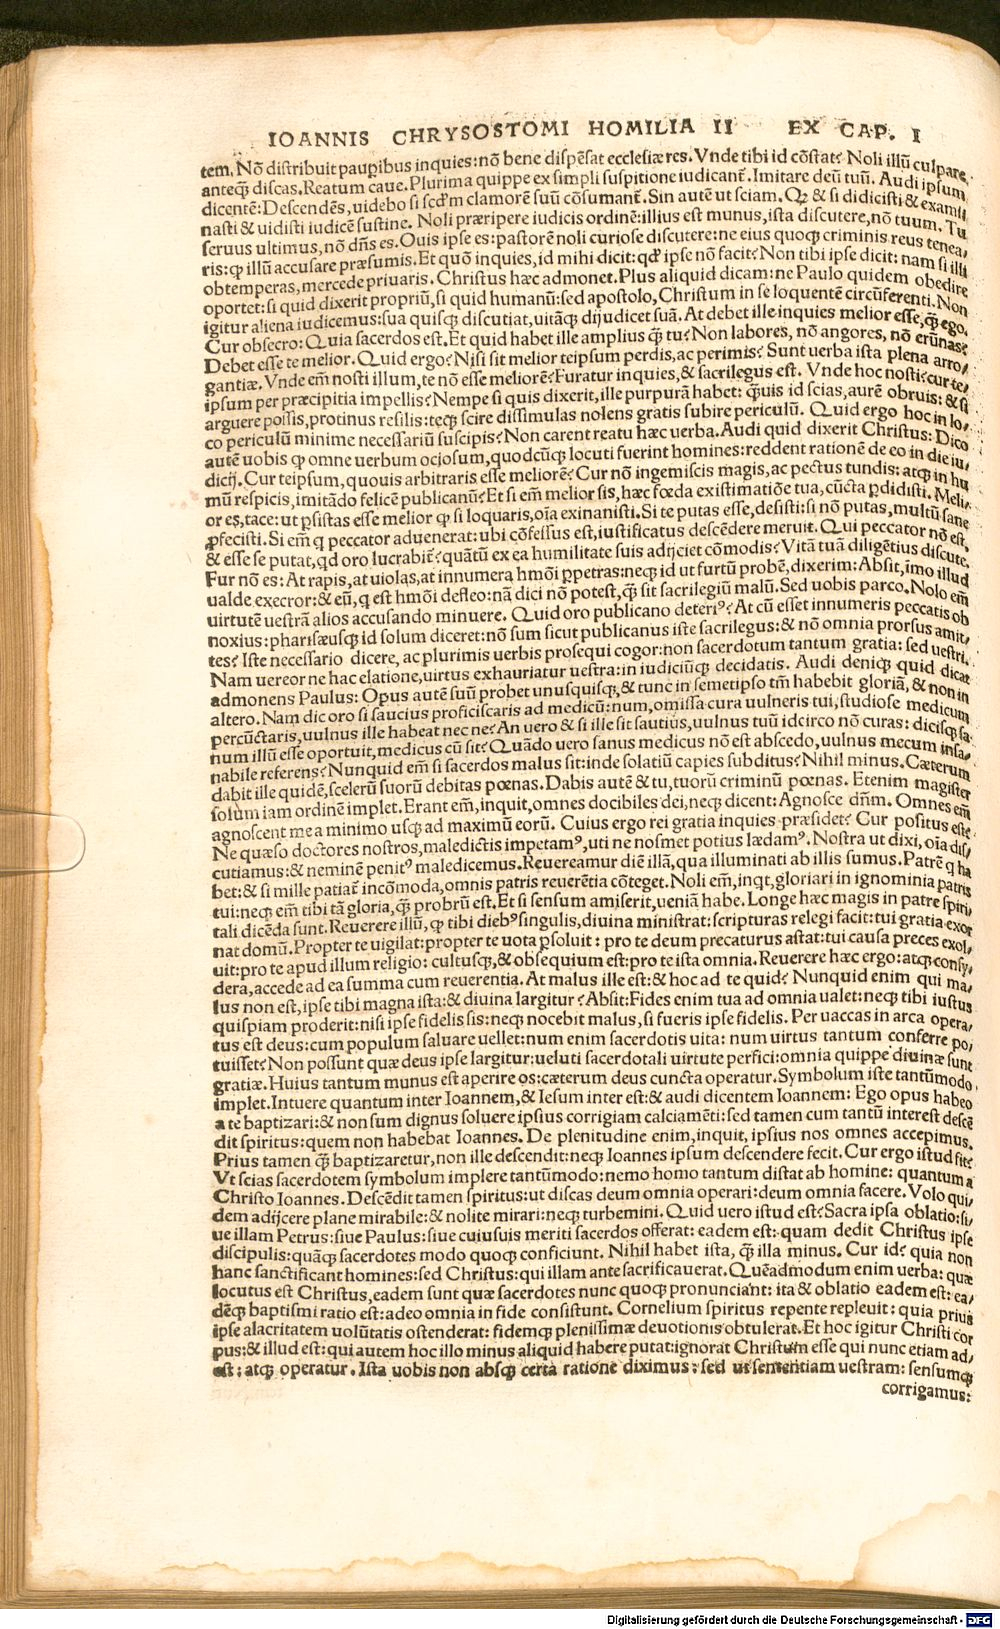 IOANNIS CHRYSOSTOMI HOMILIA II EX CAP. I
tem. Nõ distribuit paupibus inquies: nõ bene dispẽsat ecclesiæ res. Vnde tibi id cõstat? Noli illũ culpare,
anteq̃ discas. Reatum caue. Plurima quippe ex simpli suspitione iudicant̃. Imitare deũ tuũ. Audi ipsum
dicentẽ: Descendẽs, uidebo si scdm clamorẽ suũ cõsumant̃. Sin autẽ ut sciam. Qꝫ & si didicisti & exami/
nasti & uidisti iudicẽ sustine. Noli præripere iudicis ordinẽ: illius est munus, ista discutere, nõ tuum. Tu
seruus ultimus, nõ dñs es. Ouis ipse es: pastorẽ noli curiose discutere: ne eius quoqꝫ criminis reus tenea/
ris: ꝙ illũ accusare præsumis. Et quõ inquies, id mihi dicit: qđ ipse nõ facit? Non tibi ipse dicit: nam si illi
obtemperas, mercede priuaris. Christus hæc admonet. Plus aliquid dicam: ne Paulo quidem obedire
oportet: si quid dixerit propriũ, si quid humanũ: sed apostolo, Christum in se loquentẽ circũferenti. Non
igitur aliena iudicemus: sua quisqꝫ discutiat, uitãqꝫ dijudicet suã. At debet ille inquies melior esse, q̃ ego.
Cur obsecro: Quia sacerdos est. Et quid habet ille amplius q̃ tu? Non labores, nõ angores, nõ erũnas?
Debet esse te melior. Quid ergo? Nisi sit melior teipsum perdis, ac perimis? Sunt uerba ista plena arro/
gantiæ. Vnde em̃ nosti illum, te nõ esse meliorẽ? Furatur inquies, & sacrilegus est. Vnde hoc nosti? cur te/
ipsum per præcipitia impellis? Nempe si quis dixerit, ille purpurã habet: q̃uis id scias, aurẽ obruis: & si
arguere possis, protinus resilis: teqꝫ scire dissimulas nolens gratis subire periculũ. Quid ergo hoc in lo/
co periculũ minime necessariũ suscipis? Non carent reatu hæc uerba. Audi quid dixerit Christus: Dico
autẽ uobis ꝙ omne uerbum ociosum, quodcũqꝫ locuti fuerint homines: reddent rationẽ de eo in die iu/
dicij. Cur teipsum, quouis arbitraris esse meliorẽ? Cur nõ ingemiscis magis, ac pectus tundis: atqꝫ in hu
mũ respicis, imitãdo felicẽ publicanũ? Et si em̃ melior sis, hæc fœda existimatiõe tua, cũcta ꝑdidisti. Meli/
or es, tace: ut ꝑsistas esse melior ꝙ si loquaris, oĩa exinanisti. Si te putas esse, desisti: si nõ putas, multũ sane
ꝓfecisti. Si em̃ q peccator aduenerat: ubi cõfessus est, iustificatus descẽdere meruit. Qui peccator nõ est,
& esse se putat, qd oro lucrabit̃? quãtũ ex ea humilitate suis adijciet cõmodis? Vitã tuã diligẽtius discute.
Fur nõ es: At rapis, at uiolas, at innumera hmõi ꝑpetras: neqꝫ id ut furtũ probẽ, dixerim: Absit, imo illud
ualde execror: & eũ, q est hmõi defleo: nã dici nõ potest, q̃ sit sacrilegiũ malũ. Sed uobis parco. Nolo em̃
uirtutẽ uestrã alios accusando minuere. Quid oro publicano deteri⁹? At cũ esset innumeris peccatis ob
noxius: pharisæusqꝫ id solum diceret: nõ sum sicut publicanus iste sacrilegus: & nõ omnia prorsus amit/
tes? Iste necessario dicere, ac plurimis uerbis prosequi cogor: non sacerdotum tantum gratia: sed uestri.
Nam uereor ne hac elatione, uirtus exhauriatur uestra: in iudiciũqꝫ decidatis. Audi deniqꝫ quid dicat
admonens Paulus: Opus autẽ suũ probet unusquisqꝫ, & tunc in semetipso tm̃ habebit gloriã, & non in
altero. Nam dic oro si saucius proficiscaris ad medicũ: num, omissa cura uulneris tui, studiose medicum
percũctaris, uulnus ille habeat nec ne? An uero & si ille sit sautius, uulnus tuũ idcirco nõ curas: dicisqꝫ sa/
num illũ esse oportuit, medicus cũ sit? Quãdo uero sanus medicus nõ est abscedo, uulnus mecum insa/
nabile referens? Nunquid em̃ si sacerdos malus sit: inde solatiũ capies subditus? Nihil minus. Cæterum
dabit ille quidẽ, scelerũ suorũ debitas pœnas. Dabis autẽ & tu, tuorũ criminũ pœnas. Etenim magister
solum iam ordinẽ implet. Erant em̃, inquit, omnes docibiles dei, neqꝫ dicent: Agnosce dñm. Omnes em̃
agnoscent me a minimo usqꝫ ad maximũ eorũ. Cuius ergo rei gratia inquies præsidet? Cur positus est?
Ne quæso doctores nostros, maledictis impetam⁹, uti ne nosmet potius lædam⁹. Nostra ut dixi, oĩa dis/
cutiamus: & neminẽ penit⁹ maledicemus. Reuereamur diẽ illã, qua illuminati ab illis sumus. Patrẽ q ha
bet: & si mille patiat̃ incõmoda, omnis patris reuerẽtia cõteget. Noli em̃, inqt, gloriari in ignominia patris
tui: neqꝫ em̃ tibi tã gloria, q̃ probrũ est. Et si sensum amiserit, ueniã habe. Longe hæc magis in patre spiri/
tali dicẽda sunt. Reuerere illũ, ꝙ tibi dieb⁹ singulis, diuina ministrat: scripturas relegi facit: tui gratia exor
nat domũ. Propter te uigilat: propter te uota ꝑsoluit: pro te deum precaturus astat: tui causa preces exol/
uit: pro te apud illum religio: cultusqꝫ, & obsequium est: pro te ista omnia. Reuerere hæc ergo: atqꝫ consy/
dera, accede ad ea summa cum reuerentia. At malus ille est: & hoc ad te quid? Nunquid enim qui ma/
lus non est, ipse tibi magna ista: & diuina largitur? Absit: Fides enim tua ad omnia ualet: neqꝫ tibi iustus
quispiam proderit: nisi ipse fidelis sis: neqꝫ nocebit malus, si fueris ipse fidelis. Per uaccas in arca opera/
tus est deus: cum populum saluare uellet: num enim sacerdotis uita: num uirtus tantum conferre po/
tuisset? Non possunt quæ deus ipse largitur: ueluti sacerdotali uirtute perfici: omnia quippe diuinæ sunt
gratiæ. Huius tantum munus est aperire os: cæterum deus cuncta operatur. Symbolum iste tantũmodo
implet. Intuere quantum inter Ioannem, & Iesum inter est: & audi dicentem Ioannem: Ego opus habeo
a te baptizari: & non sum dignus soluere ipsius corrigiam calciamẽti: sed tamen cum tantũ interest descẽ
dit spiritus: quem non habebat Ioannes. De plenitudine enim, inquit, ipsius nos omnes accepimus.
Prius tamen q̃ baptizaretur, non ille descendit: neqꝫ Ioannes ipsum descendere fecit. Cur ergo istud fit?
Vt scias sacerdotem symbolum implere tantũmodo: nemo homo tantum distat ab homine: quantum a
Christo Ioannes. Descẽdit tamen spiritus: ut discas deum omnia operari: deum omnia facere. Volo qui/
dem adijcere plane mirabile: & nolite mirari: neqꝫ turbemini. Quid uero istud est? Sacra ipsa oblatio: si/
ue illam Petrus: siue Paulus: siue cuiusuis meriti sacerdos offerat: eadem est: quam dedit Christus ipse
discipulis: quãqꝫ sacerdotes modo quoqꝫ conficiunt. Nihil habet ista, q̃ illa minus. Cur id? quia non
hanc sanctificant homines: sed Christus: qui illam ante sacrificauerat. Quẽadmodum enim uerba: quæ
locutus est Christus, eadem sunt quæ sacerdotes nunc quoqꝫ pronunciant: ita & oblatio eadem est: ea/
dẽqꝫ baptismi ratio est: adeo omnia in fide consistunt. Cornelium spiritus repente repleuit: quia prius
ipse alacritatem uolũtatis ostenderat: fidemqꝫ plenissimæ deuotionis obtulerat. Et hoc igitur Christi cor
pus: & illud est: qui autem hoc illo minus aliquid habere putat: ignorat Christum esse qui nunc etiam ad/
est: atqꝫ operatur. Ista uobis non absqꝫ certa ratione diximus: sed ut sententiam uestram: sensumqꝫ
corrigamus:
Digitalisierung gefördert durch die Deutsche Forschungsgemeinschaft - DFG